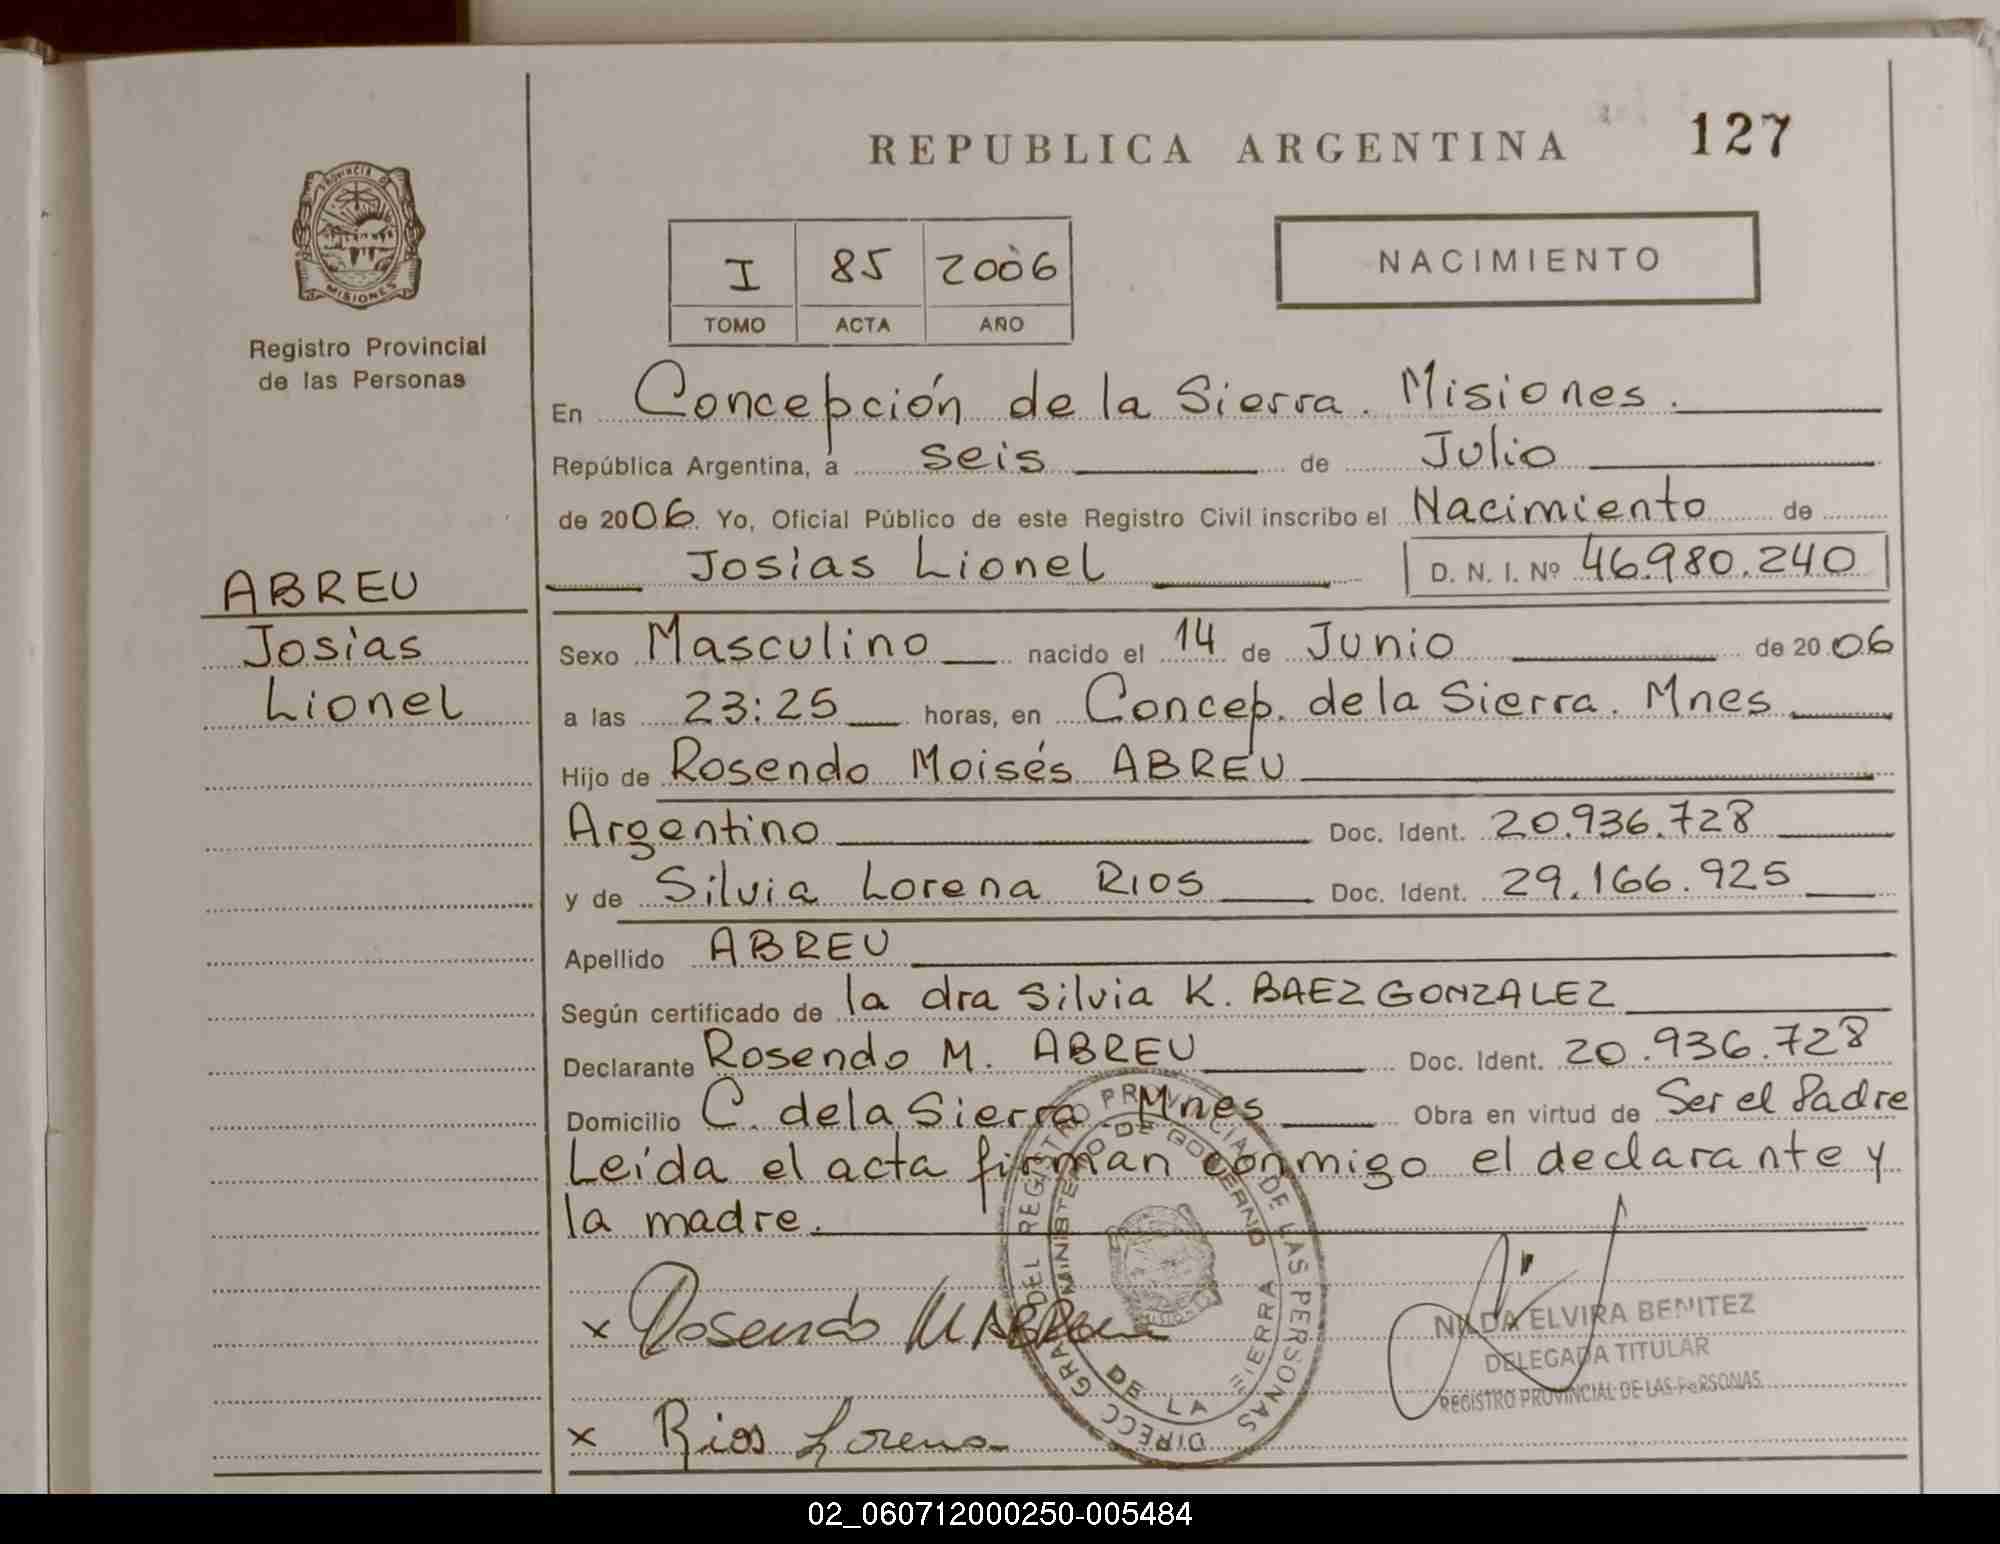 REPUBLICA ARGENTINA 127
PROVINCIA DE
MISIONES
Registro Provincial
de las Personas
I 85 2006
TOMO ACTA AÑO
NACIMIENTO
En Concepción de la Sierra. Misiones.
República Argentina, a seis de Julio
de 2006. Yo, Oficial Público de este Registro Civil inscribo el Nacimiento de
Josías Lionel D. N. I. Nº 46.980.240
ABREU
Josías
Lionel
Sexo Masculino nacido el 14 de Junio de 2006
a las 23:25 horas, en Concep. de la Sierra. Mnes
Hijo de Rosendo Moisés ABREU
Argentino Doc. Ident. 20.936.728
y de Silvia Lorena RIOS Doc. Ident. 29.166.925
Apellido ABREU
Según certificado de la dra Silvia K. BAEZ GONZALEZ
Declarante Rosendo M. ABREU Doc. Ident. 20.936.728
Domicilio C. de la Sierra Mnes Obra en virtud de Ser el Padre
Leída el acta firman conmigo el declarante y
la madre.
DIRECC GRAL DEL REGISTRO PROVINCIAL DE LAS PERSONAS
MINISTERIO DE GOBIERNO
DE LA SIERRA
x Rosendo M Abreu
NILDA ELVIRA BENITEZ
DELEGADA TITULAR
REGISTRO PROVINCIAL DE LAS PERSONAS
x Rios Lorena
02_060712000250-005484